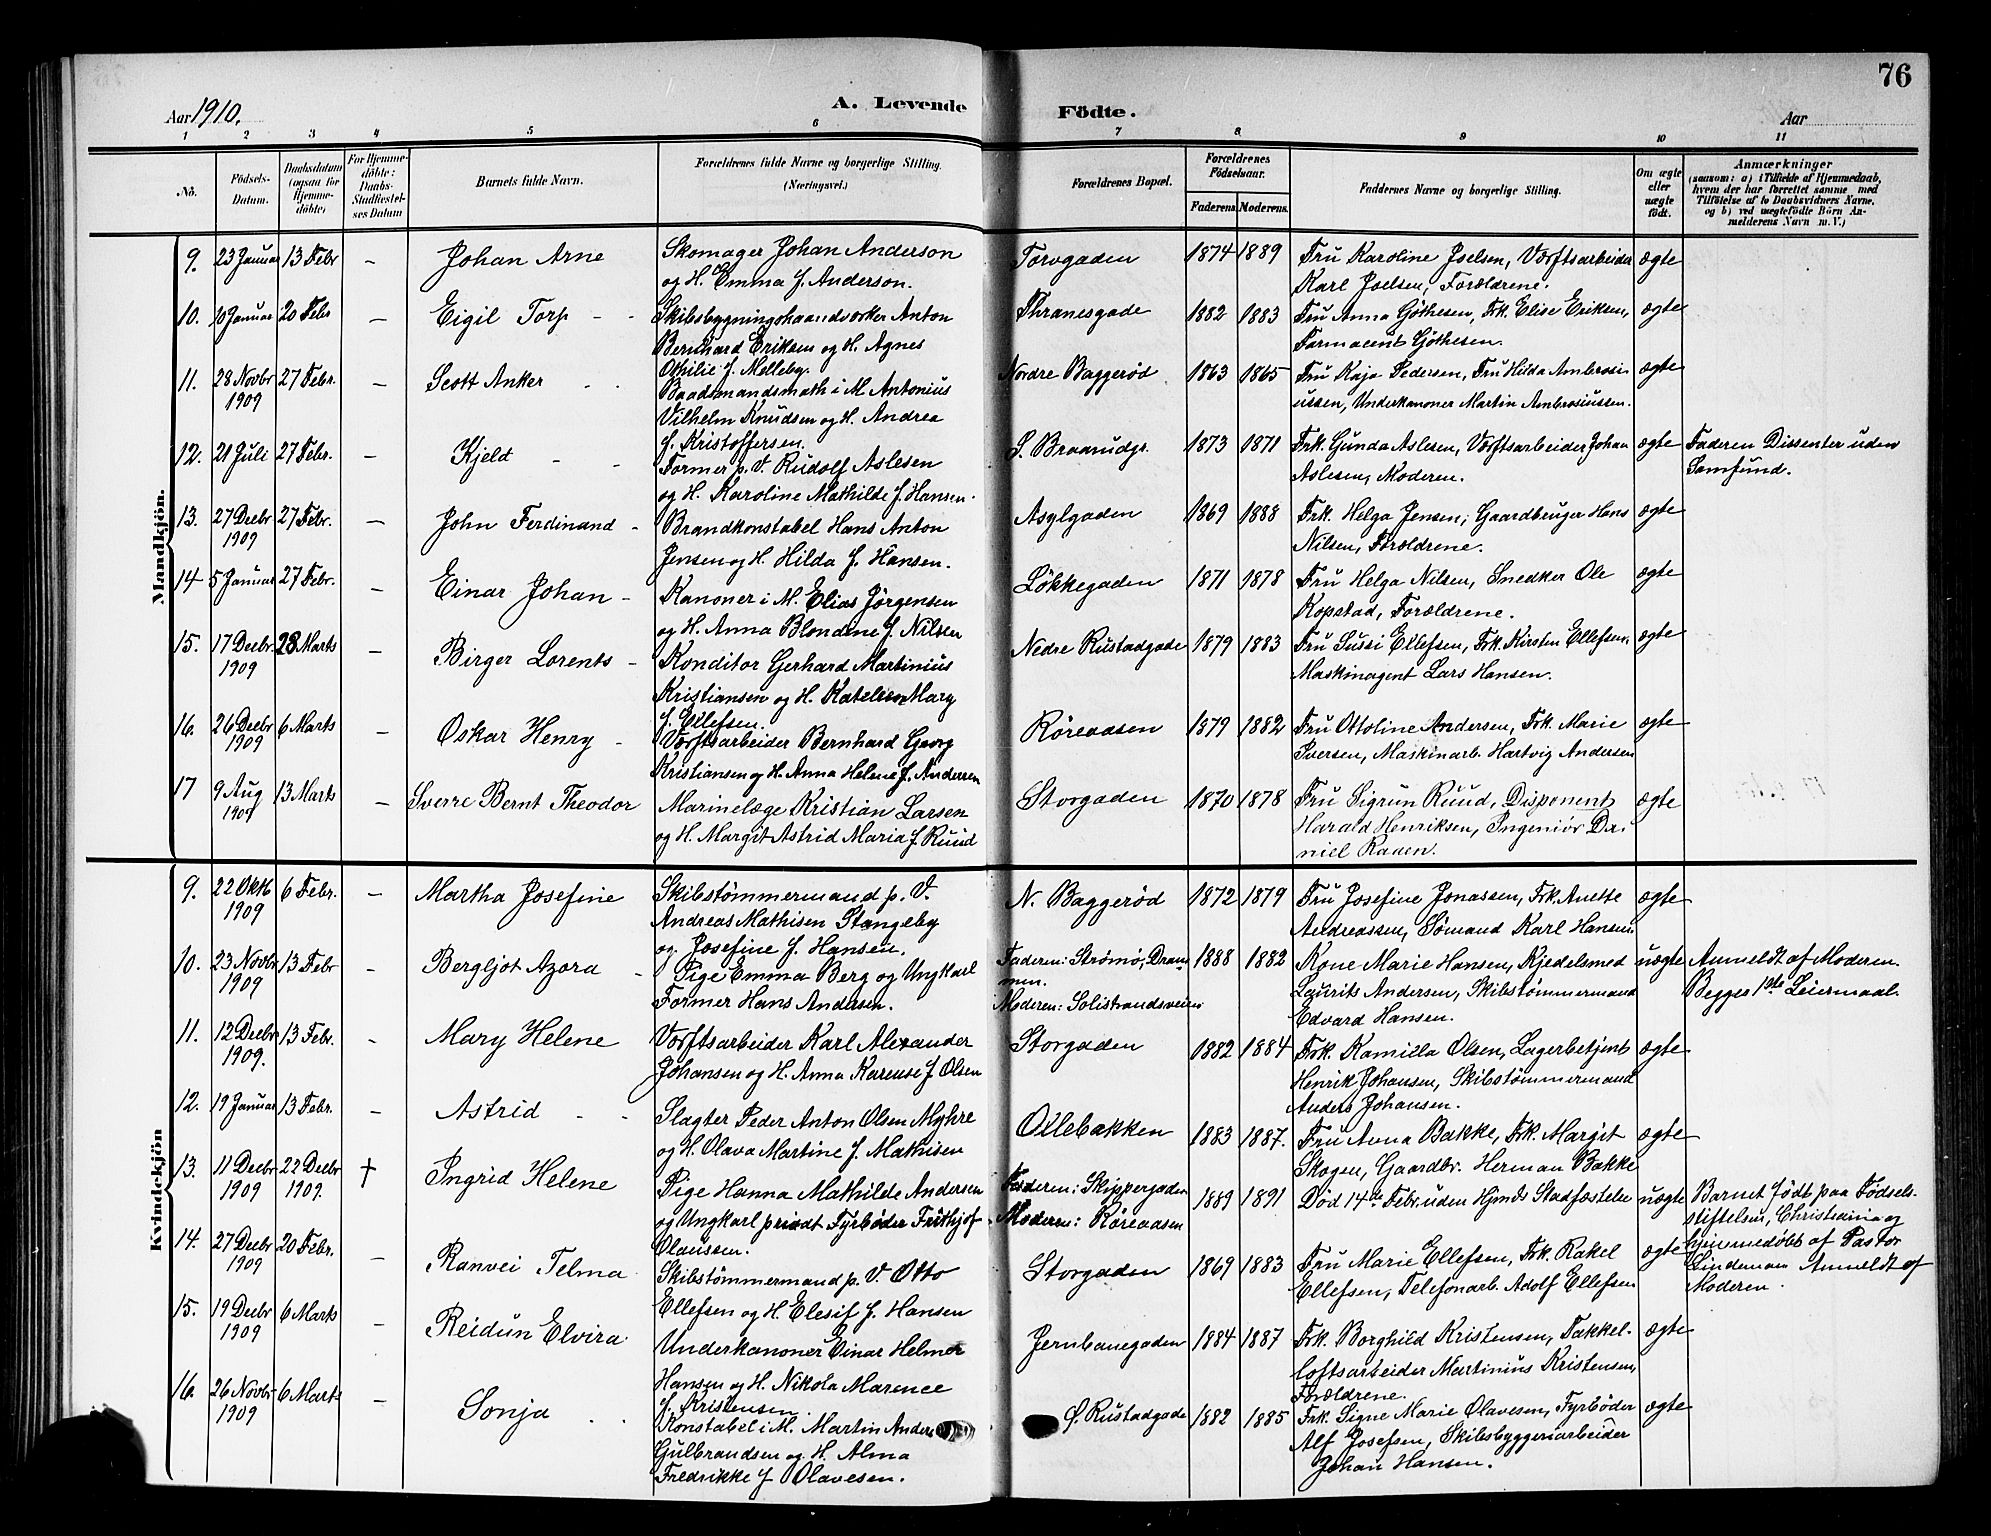 76
Aar 1910.
A. Levende Födte.
Aar
1 2 3 4 5 6 7 8 9 10 11
No.
Födsels-Datum.
Daabsdatum (ogsaa for Hjemme-döbte)
For Hjemme-döbte: Daabs-Stadfæstel-ses Datum
Barnets fulde Navn.
Forældrenes fulde Navne og borgerlige Stilling. (Næringsvei.)
Forældrenes Bopæl.
Forældrenes Födselsaar.
Faderens. Moderens.
Faddernes Navne og borgerlige Stilling.
Om ægte eller uægte födt.
Anmærkninger
(saasom: a) i Tilfælde af Hjemmedaab,
hvem der har forrettet samme med
Tilföielse af to Daabsvidners Navne,
og b) ved uægtefödte Börn An-
melderens Navn m. V.)
Mandkjön.
9. 23 Januar 13 Febr – Johan Arne
Skomager Johan Anderson
og H. Emma f. Anderson.
Torvgaden 1874 1889
Fru Karoline Joelsen, Værftsarbeider
Karl Joelsen, Forældrene.
ægte
10. 10 Januar 20 Febr – Eigil Torp
Skibsbygningshaandværker Anton
Bernhard Eriksen og H. Agnes
Othilie f. Melleby.
Thranesgade 1882 1883
Fru Anna Göthesen, Frk. Elise Eriksen,
Farmaceut Göthesen.
ægte
11. 28 Novbr 1909 27 Febr. – Scott Anker
Baadsmandsmath i M. Antonius
Vilhelm Knudsen og H. Andrea
f. Kristoffersen.
Nordre Baggerød 1863 1865
Fru Kaja Pedersen, Fru Hilda Ambrosi-
ussen, Underkanoner Martin Ambrosiussen.
ægte
12. 21 Juli 27 Febr. – Kjeld
Former p. V. Rudolf Aslesen
og H. Karoline Mathilde f. Hansen.
S. Braarudgr. 1873 1871
Frk. Gunda Aslesen, Værftsarbeider Johan
Aslesen, Moderen.
ægte
Faderen Dissenter uden
Samfund.
13. 27 Decbr 1909 27 Febr. – John Ferdinand
Brandkonstabel Hans Anton
Jensen og H. Hilda f. Hansen.
Asylgaden 1869 1888
Frk. Helga Jensen, Gaardbruger Hans
Nilsen, Forældrene.
ægte
14 5 Januar 27 Febr. – Einar Johan
Kanoner i M. Elias Jörgensen
og H. Anna Blondine f. Nilsen
Løkkegaden 1871 1878
Fru Helga Nilsen, Snedker Ole
Kopstad, Forældrene.
ægte
15. 17 Decbr. 1909 28 Marts – Birger Lorents
Konditor Gerhard Martinius
Kristiansen og H. Mary
f. Ellefsen.
Nedre Rustadgade 1879 1883
Fru Sussi Ellefsen, Frk. Kirsten Ellefsen,
Maskinagent Lars Hansen.
ægte
16. 26 Decbr 1909 6 Marts – Oskar Henry
Værftsarbeider Bernhard Georg
Kristiansen og H. Anna Helene f. Andersen
Röreaasen 1879 1882
Fru Ottoline Andersen, Frk. Marie
Iversen, Maskinarb. Hartvig Andersen
ægte
17 9 Aug 1909 13 Marts – Sverre Bernt Theodor
Marinelæge Kristian Larsen
og H. Margit Astrid Maria f. Ruud
Storgaden 1870 1878
Fru Sigrun Ruud, Disponent
Harald Henriksen, Ingeniör Da-
niel Raaen.
ægte
Kvindekjön
9. 22 Oktb 1909 6 Febr. – Martha Josefine
Skibstømmermand p. V.
Andreas Mathisen Stangeby
og Josefine f. Hansen.
N. Baggerød 1872 1879
Fru Josefine Jonassen, Frk. Anette
Andreassen, Sømand Karl Hansen
ægte
10. 23 Novbr 1909 13 Febr – Bergljot Azora
Pige Emma Berg og Ungkarl
Former Hans Andersen.
Faderen: Strømø, Dram-
men.
Moderen: Solistrandsveien
1888 1882
Kone Marie Hansen, Kjedelsmed
Laurits Andersen, Skibstømmermand
Edvard Hansen.
uægte
Anmeldt af Moderen.
Begges 1ste Leiermaal.
11. 12 Decbr 1909. 13 Febr. – Mary Helene
Værftsarbeider Karl Alexander
Johansen og H. Anna Karense f. Olsen
Storgaden 1882 1884
Frk. Kamilla Olsen, Lagerbetjent
Henrik Johansen, Skibstømmermand
Anders Johansen.
ægte
12. 19 Januar 13 Febr. – Astrid
Slagter Peder Anton Olsen Myhre
og H. Olava Martine f. Mathisen
Ollebakken 1883 1887.
Fru Anna Bakke, Frk. Margit
Skogen, Gaardbr. Herman Bakke
ægte
13. 11 Decbr 1909 22 Decbr 1909. † Ingrid Helene
Pige Hanna Mathilde Andersen
og Ungkarl privat Fyrbøder Frithjof
Olaussen.
Faderen: Skippergaden
Moderen: Röreaasen
1889 1891
Död 14de Febr. uden Hjmds Stadfæstelse
uægte
Barnet födt paa Födsels-
stiftelsen, Christiania og
hjemmedøbt af Pastor
Lindeman Anmeldt af
Moderen.
14. 27 Decbr 1909 20 Febr. – Ranvei Telma
Skibstømmermand p. V. Otto
Ellefsen og H. Elesif f. Hansen
Storgaden 1869 1883
Fru Marie Ellefsen, Frk. Rakel
Ellefsen, Telefonarb. Adolf Ellefsen
ægte
15. 19 Decbr 1909 6 Marts – Reidun Elvira
Underkanoner Einar Helmer
Hansen og H. Nikola Marence
f. Kristensen
Jernbanegaden 1884 1887
Frk. Borghild Kristensen, Takkel-
loftsarbeider Martinius Kristensen,
Forældrene.
ægte
16. 26 Novbr 1909 6 Marts – Sonja
Konstabel i M. Martin
Gulbrandsen og H. Alma
Fredrikke f Olavesen.
Ø. Rustadgade 1882 1885
Frk. Signe Marie Olavesen, Fyrbøder
Alf Josefsen, Skibsbyggeriarbeider
Johan Hansen.
ægte